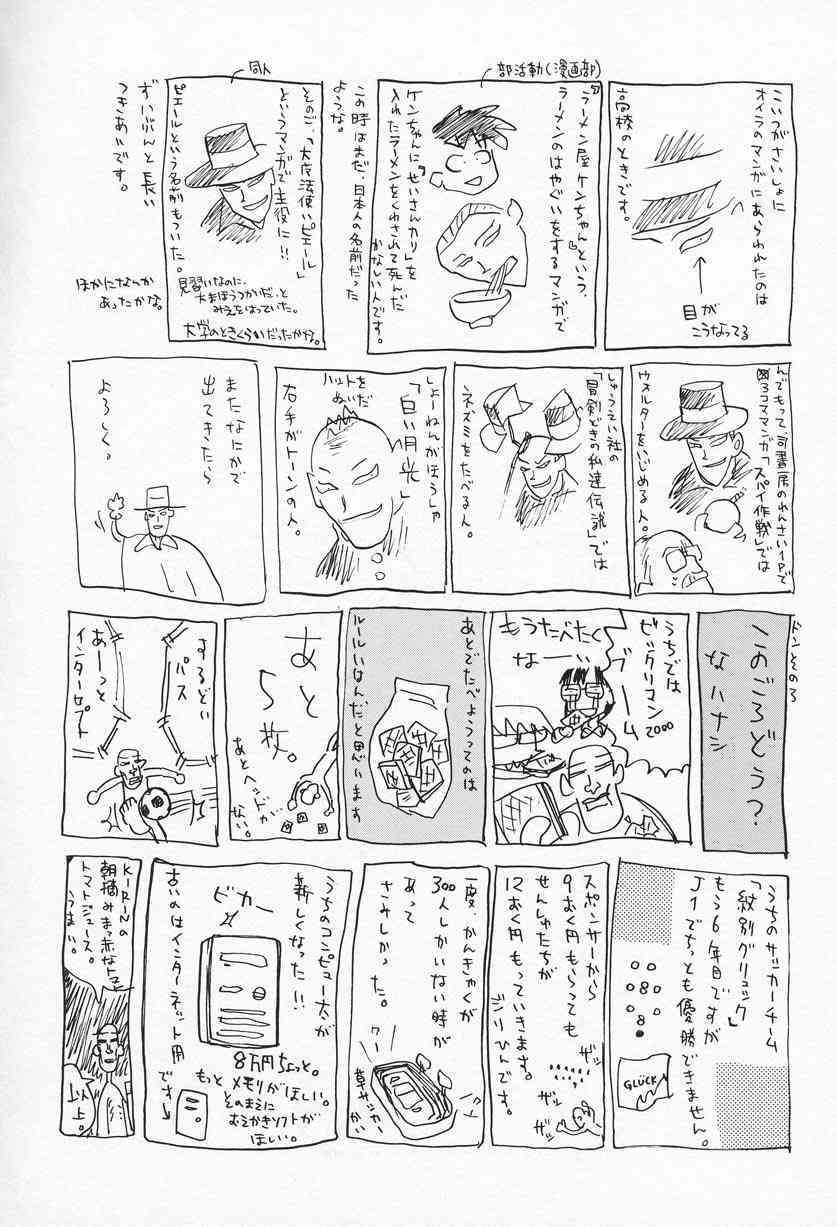 こいつがさいしょに
オイラのマンガにあらわれたのは
高校のときです。
目が
こうなってる
部活動(漫画部)
『ラーメン屋ケンちゃん』という、
ラーメンのはやぐいをするマンガで
ケンちゃんに「せいさんカリ」を
入れたラーメンをくわされて死んだ
かなしい人です。
この時はまだ、日本人の名前だった
ような。
同人
そのご、「大魔法使いピエール」
というマンガで主役に!!
ピエールという名前もついた。
見習いなのに、
大まほうつかいだ、と
みえをはっていた。
大学のときくらいだったかな。
ずいぶんと長い
つきあいです。
ほかになにか
あったかな。
んでもって、司書房のれんさい1Pで
3コママンガ「スパイ作戦」では
ウォルターをいじめる人。
しゅうえい社の
「冒剣どきの私達伝説」では
ネズミをたべる人。
しょーねんがほうしゃ
「白い月光」
ハットを
ぬいだ
右手がトーンの人。
またなにかで
出てきたら
よろしく。
ドンその3
このごろどう?
なハナシ
うちでは
ビックリマン2000
ブーム
もうたべたく
なーい
あとでたべようってのは
ルールいはんだと思います
あと
5枚。
あとヘッドが
ない。
するどい
パス
あーっと
インターセプト
うちのサッカーチーム
「紋別グリュック」
もう6年目ですが
J1でちっとも優勝できません。
GLÜCK
スポンサーから
9おく円もらっても
せんしゅたちが
12おく円もっていきます。
ジリひんです。
ザッ
ザッ
ザッ
一度、かんきゃくが
300人しかいない時が
あって
さみしかった。
ワー
ワー
草サッカー
かい
うちのコンピュー太が
新しくなった!!
ビカー
8万円ちょっと。
もっとメモリがほしい。
そのまえに
おえかきソフトが
ほしい。
古いのはインターネット用
です→
KIRINの
朝摘みまっ赤なトマト
トマトジュース。
うまい。
以上。